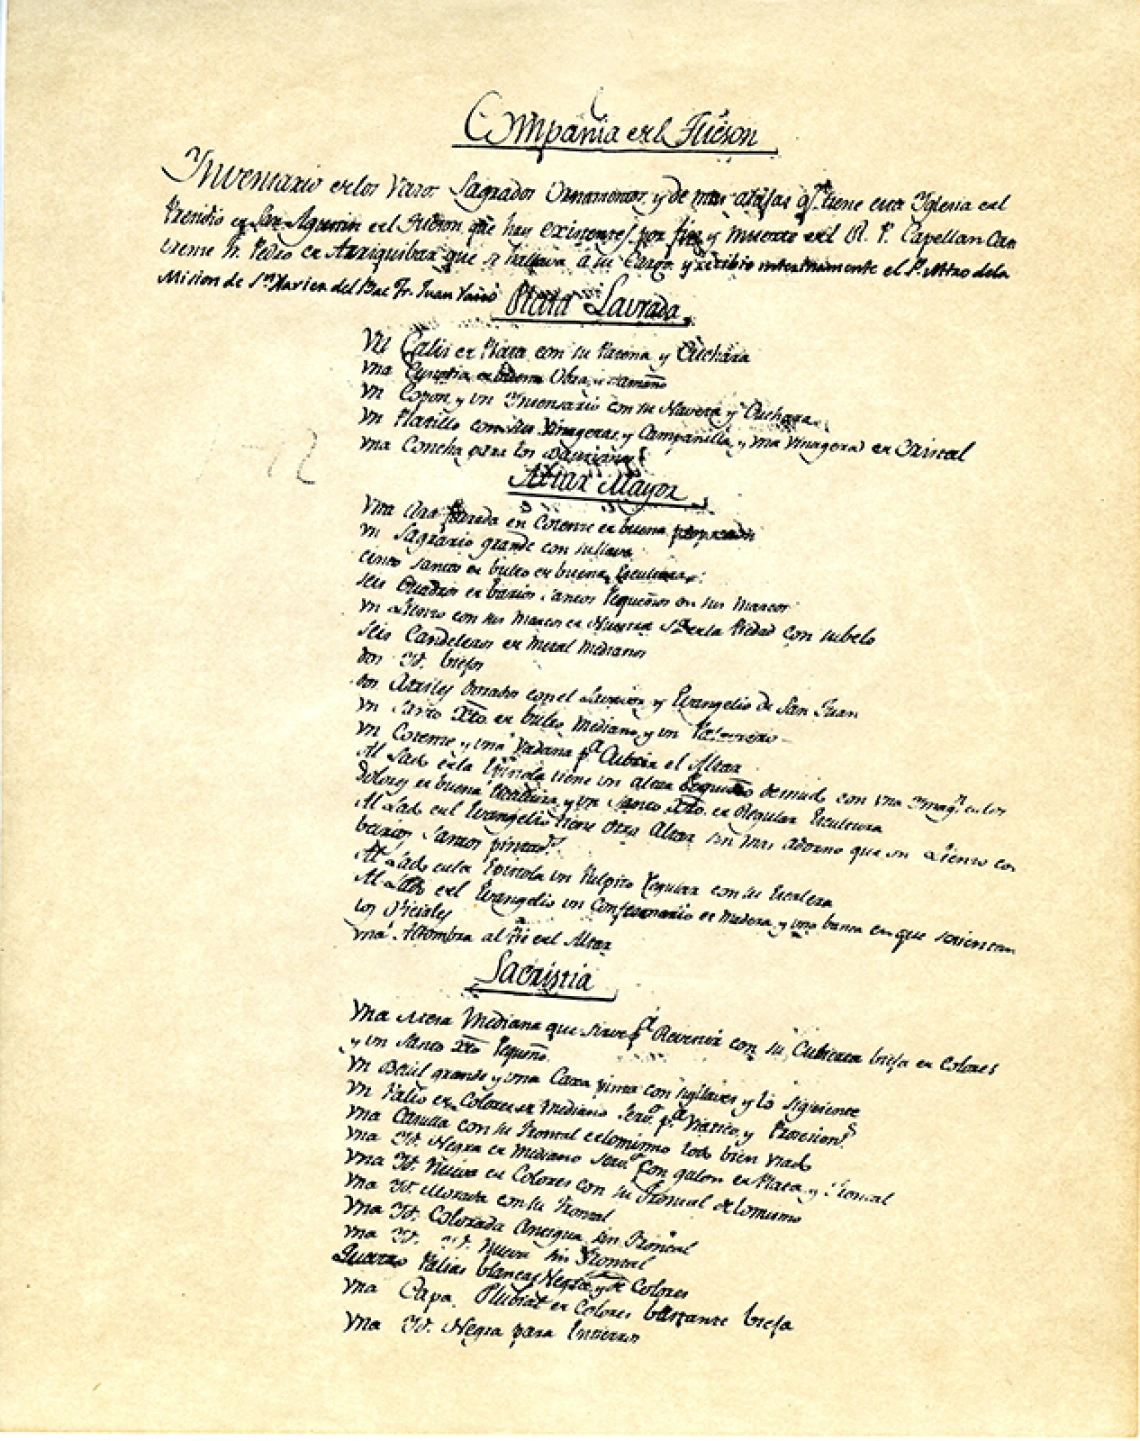 Compañia en el Tucson
Inventario de los Vasos Sagrados Ornamentos, y de mas alajas qe. tiene esta Yglesia del
Presidio de San Agustin del Tucson que hay existentes por fin y muerte del R. P. Capellan Cas
trense Dn. Pedro de Arriquibar que se hallava a su Cargo, y recibio interinamente el P. Mtro de la
Mision de Sn. Xavier del Bac Fr. Juan Vaño
Plata Lavrada
Vn Calis de Plata con su Patena y Cuchara
Vna Obra, y tamaño
Vn Copon, y un Yncensario con su Naveta y Cuchara
Vn Platillo con sus Vinageras, y Campanilla, y vna Vinagera de Cristal
Vna Concha para los Bautismos
Altar Mayor
Vna Ara forrada en Cotense de buena
Vn Sagrario grande con su llave
cinco Santos de bulto de buena Escultura
seis Quadros de barios Santos Pequeños en sus Marcos
Vn Lienzo con sus Marcos de Nuestra Sra de la Piedad con su belo
Seis Candeleros de Metal Medianos
dos Yd. biejos
dos Atriles Dorados con el Lavatorio y Evangelio de San Juan
Vn Santo Xto. de bulto Mediano, y un
Vn Cotense y una Badana pa. Cubrir el Altar
Al Lado de la Epistola tiene un altar Pequeño demud. con vna Ymagn. de los
Dolores de buena Escultura, y un Santo Xto. de Regular Escultura
Al Lado del Evangelio tiene Otro Altar sin mas adorno que un Lienzo con
barios Santos pintads.
Al Lado de la Epistola un Pulpito Regular con su Escalera
Al Lado del Evangelio un Confesonario de Madera, y una banca en que se sientan
los Oficiales
Vna Alfombra al Pie del Altar
Sacristia
Vna Mesa Mediana que sirve pa. Revestir con su Cubierta bieja de Colores
y un Santo Xto Pequeño
Vn Baul grande y una Caxa pinta con sus llaves y lo siguiente
Vn Palio de Colores de Mediano servo. pa. Viatico, y Prosesions.
Vna Casulla con su Frontal de lo mismo todo bien Usado
Vna Yd. Negra de Mediano servo. con galon de Plata, y Frontal
Vna Yd. Nueva de Colores con su Frontal de lo mismo
Vna Yd. Morada con su Frontal
Vna Yd. Colorada Antigua sin Frontal
Vna Yd. Yd. Nueva sin Frontal
Quatro Palias blancas Negra y de Colores
Vna Capa Plubial de Colores bastante bieja
Vna Yd. Negra para Entierros